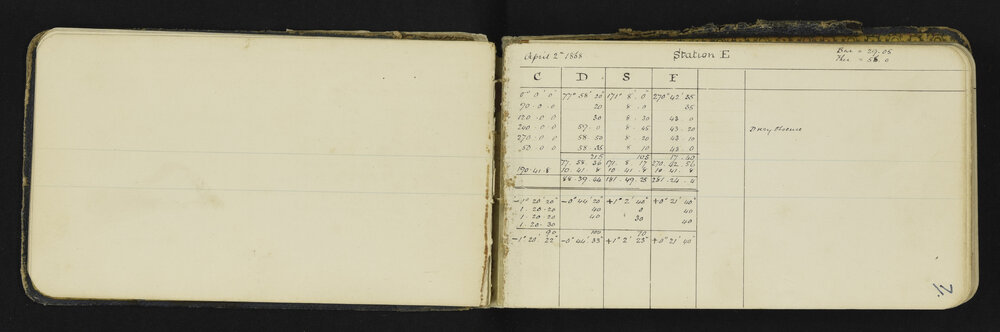 April 2nd 1868 Station E Bar = 29.05
Ther = 56.0
C D S F
0° 0' 0" 77° 58' 20" 171° 8' 0" 270° 42' 35
70 . 0 . 0 20 8 . 0 35
120 . 0 . 0 30 8 . 30 43 . 0
240 . 0 . 0 59 . 0 8 . 45 43 . 20
270 . 0 . 0 58 . 50 8 . 20 43 . 10
50 . 0 0 58 . 35 8 10 43 . 0
215 105 17 . 40
77 . 58 . 36 171 . 8 . 17 270 . 42 . 56
190 . 41 . 8 10 . 41 . 8 10 41 . 8 10 41 . 8
88 . 39 . 44 181 . 49 . 25 281 . 24 . 4
-1° 20' 20" -0° 44' 20" +1° 2' 40" +0° 21' 40"
1 . 20 . 20 40 0 40
1 . 20 . 20 40 " 30 40
1 . 20 . 30
90 100 70
-1° 20' 22" -0° 44' 33" +1° 2' 23" +0° 21' 40